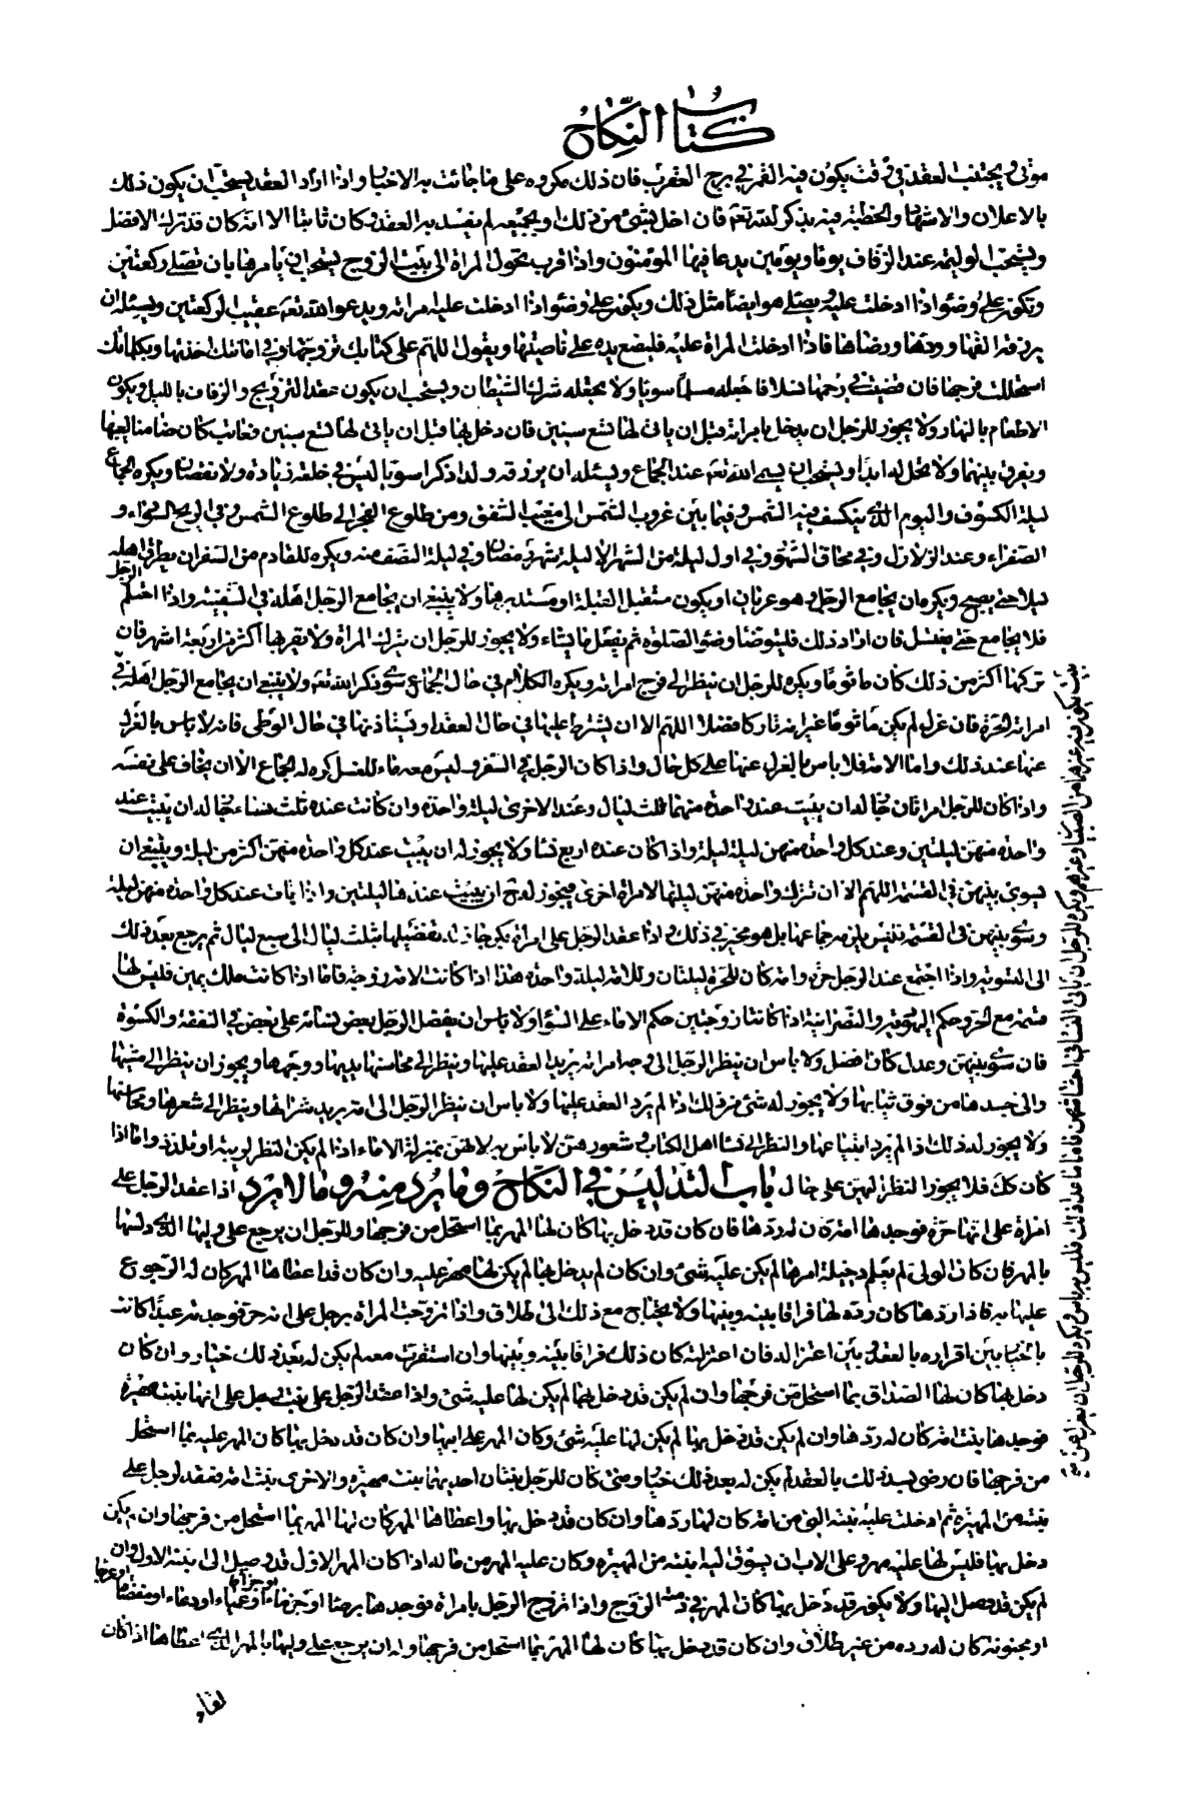 كتاب النكاح
موتى ويجتنب العقد في وقت يكون فيه القمر في برج العقرب فان ذلك مكروه على ما جائت به الاخبار واذا اراد العقد يستحب ان يكون ذلك
بالاعلان والاشهاد والخطبة فيه بذكر الله تعه فان اخل بشئ من ذلك او بجميعه لم يفسد به العقد وكان ثابتا الا انه كان قد ترك الافضل
ويستحب الوليمه عند الزفاف يوما ويومين يدعا فيها المؤمنون واذا قرب تحول المراة الى بيت الزوج يستحب ان يامرها بان تصلى ركعتين
وتكون على وضوء اذا ادخلت عليه ويصلى هو ايضا مثل ذلك ويكون على وضوء اذا ادخلت عليه امراته ويدعو الله تعه عقيب الركعتين ويسئله ان
يرزقه الفها وودها ورضاها فاذا ادخلت المراة عليه فليضع يده على ناصيتها ويقول اللهم على كتابك تزوجتها وفي امانتك اخذتها وبكلماتك
استحللت فرجها فان قضيت في رحمها نسلا فاجعله مسلما سويا ولا تجعله شرك الشيطان ويستحب ان يكون عقد التزويج والزفاف بالليل ويكون
الاطعام بالنهار ولا يجوز للرجل ان يدخل بامراته قبل ان ياتى لها تسع سنين فان دخل بها قبل ان ياتى لها تسع سنين فعابت كان ضامنا لعيبها
ويفرق بينهما ولا تحل له ابدا ويستحب ان يسمى الله تعه عند الجماع ويسئله ان يرزقه ولدا ذكرا سويا ليس في خلقه زيادة ولا نقصان ويكره الجماع
ليلة الكسوف واليوم الذى ينكسف فيه الشمس وفيما بين غروب الشمس الى مغيب الشفق ومن طلوع الفجر الى طلوع الشمس وفي الريح السوداء و
الصفراء وعند الزلازل وفي محاق الشهور وفي اول ليلة من الشهر الا ليلة شهر رمضان وفي ليلة النصف منه ويكره للقادم من السفر ان يطرق اهله
ليلا حتى يصبح ويكره ان يجامع الرجل وهو عريان او يكون مستقبل القبلة او مستدبرها ولا ينبغى ان يجامع الرجل اهله في السفينة واذا احتلم الرجل
فلا يجامع حتى يغتسل فان اراد ذلك فليتوضا وضوء الصلوة ثم يفعل ما يشاء ولا يجوز للرجل ان يترك المراة ولا يقربها اكثر من اربعة اشهر فان
تركها اكثر من ذلك كان ماثوما ويكره للرجل ان ينظر الى فرج امراته ويكره الكلام في حال الجماع سوى ذكر الله تعه ولا ينبغى ان يجامع الرجل اهله في
امراته الحرة فان عزل لم يكن ماثوما غير انه تاركا فضلا اللهم الا ان يشترط عليها في حال العقد او يستاذنها في حال الوطى فانه لا باس بالعزل
عنها عند ذلك واما الامة فلا باس بالعزل عنها على كل حال واذا كان الرجل في السفر وليس معه ماء للغسل كره له الجماع الا ان يخاف على نفسه
واذا كان للرجل امراتان جاز له ان يبيت عند واحدة منهما ثلث ليال وعند الاخرى ليلة واحدة وان كانت عنده ثلث نساء جاز له ان يبيت عند
واحدة منهن ليلتين وعند كل واحدة منهن ليلة ليلة واذا كان عنده اربع نسا ولا يجوز له ان يبيت عند كل واحدة منهن اكثر من ليلة وينبغى ان
يسوى بينهن في القسمة اللهم الا ان تترك واحدة منهن ليلتها لامراة اخرى فيجوز له ح ان يبيت عندها ليلتين واذا بات عند كل واحدة منهن ليلة
وسوى بينهن في القسمة فليس يلزمه جماعها بل هو مخير في ذلك واذا عقد الرجل على امراة بكر جاز له تفضيلها بثلث ليال الى سبع ليال ثم يرجع بعد ذلك
الى التسوية واذا اجتمع عند الرجل حرة وامة كان للحرة ليلتان وللامة ليلة واحدة هذا اذا كانت الامة زوجة فاما اذا كانت ملك يمين فليس لها
قسمة مع الحرة وحكم اليهودية والنصرانية اذا كانتا زوجتين حكم الاماء على السواء ولا باس ان يفضل الرجل بعض نسائه على بعض في النفقة والكسوة
فان سوى بينهن وعدل كان افضل ولا باس ان ينظر الرجل الى وجه امراة يريد العقد عليها وينظر الى محاسنها يديها ووجهها ويجوز ان ينظر الى مشيها
والى جسدها من فوق ثيابها ولا يجوز له شئ من ذلك اذا لم يرد العقد عليها ولا باس ان ينظر الرجل الى امة يريد شرائها وينظر الى شعرها ومحاسنها
ولا يجوز له ذلك اذا لم يرد ابتياعها والنظر الى نسا اهل الكتاب وشعورهن لا باس به لانهن بمنزلة الاماء اذا لم يكن النظر لريبة او تلذذ واما اذا
كان كذلك فلا يجوز النظر اليهن على حال باب التدليس في النكاح وما يرد منه وما لا يرد اذا عقد الرجل على
امراة على انها حرة فوجدها امة كان له ردها فان كان قد دخل بها كان لها المهر بما استحل من فرجها وللرجل ان يرجع على وليها الذى دلسها
بالمهر فان كان الولى لم يعلم دخيلة امرها لم يكن عليه شئ وان كان لم يدخل بها لم يكن لها مهر عليه وان كان قد اعطاها المهر كان له الرجوع
عليها به فاذا ردها كان رده لها فراقا بينه وبينها ولا يحتاج مع ذلك الى طلاق واذا تزوجت المراة برجل على انه حر فوجدته عبدا كانت
بالخيار بين اقراره بالعقد وبين اعتزاله فان اعتزلته كان ذلك فراقا بينه وبينها وان استقرت معه لم يكن له بعد ذلك خيار وان كان
دخل بها كان لها الصداق بما استحل من فرجها وان لم يكن قد دخل بها لم يكن لها عليه شئ واذا عقد الرجل على بنت رجل على انها بنت مهيرة
فوجدها بنت امة كان له ردها وان لم يكن قد دخل بها لم يكن لها عليه شئ وكان المهر على ابيها وان كان قد دخل بها كان المهر عليه بما استحل
من فرجها فان رضى بعد ذلك بالعقد لم يكن له بعد ذلك خيار ومتى كان للرجل بنتان احديهما بنت مهيرة والاخرى بنت امة فعقد لرجل على
بنته من المهيرة ثم ادخلت عليه بنته التى من امة كان له ردها وان كان قد دخل بها واعطاها المهر كان لها المهر بما استحل من فرجها وان لم يكن
دخل بها فليس لها عليه مهر وعلى الاب ان يسوق اليه ابنته من المهيرة وكان عليه المهر من ماله اذا كان المهر الاول قد وصل الى ابنته الاولى وان
لم يكن قد وصل اليها ولا يكون قد دخل بها كان المهر في ذمة الزوج واذا تزوج الرجل بامراة فوجدها برصا او جذماء او عمياء او رتقاء او مفضاة او عرجا
او مجنونة كان له رده من غير طلاق وان كان قد دخل بها كان لها المهر بما استحل من فرجها وله ان يرجع على وليها بالمهر الذى اعطاها اذا كان
بيت يكون فيه غيرهما من الصبيان وغيرهم ويكره للرجل ان ياتى النساء في احشاشهن فاما ما عدا ذلك فليس به باس ويكره للرجل ان يعزل عن